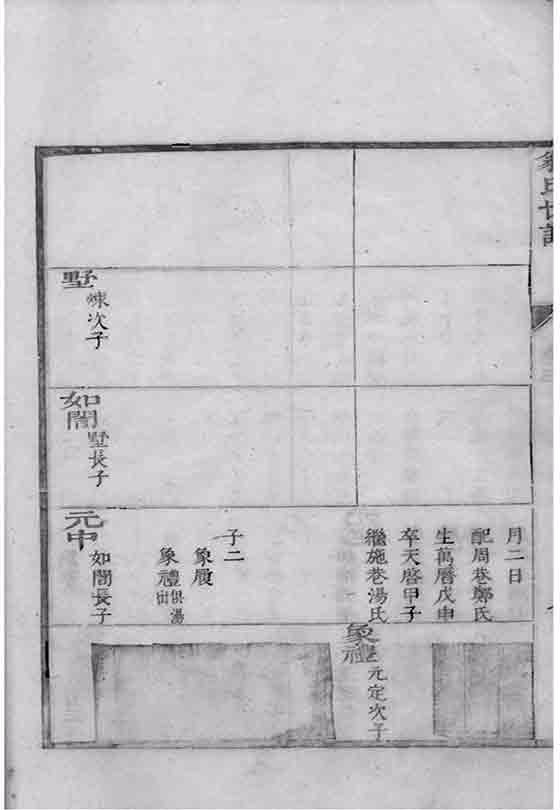 氏世譜
月二日
配周巷鄭氏
生萬曆戊申
卒天啓甲子
繼施巷湯氏
子二
象展
象禮俱湯出
象禮
元定次子
墅
煉次子
如閣
墅長子
元申
如閣長子